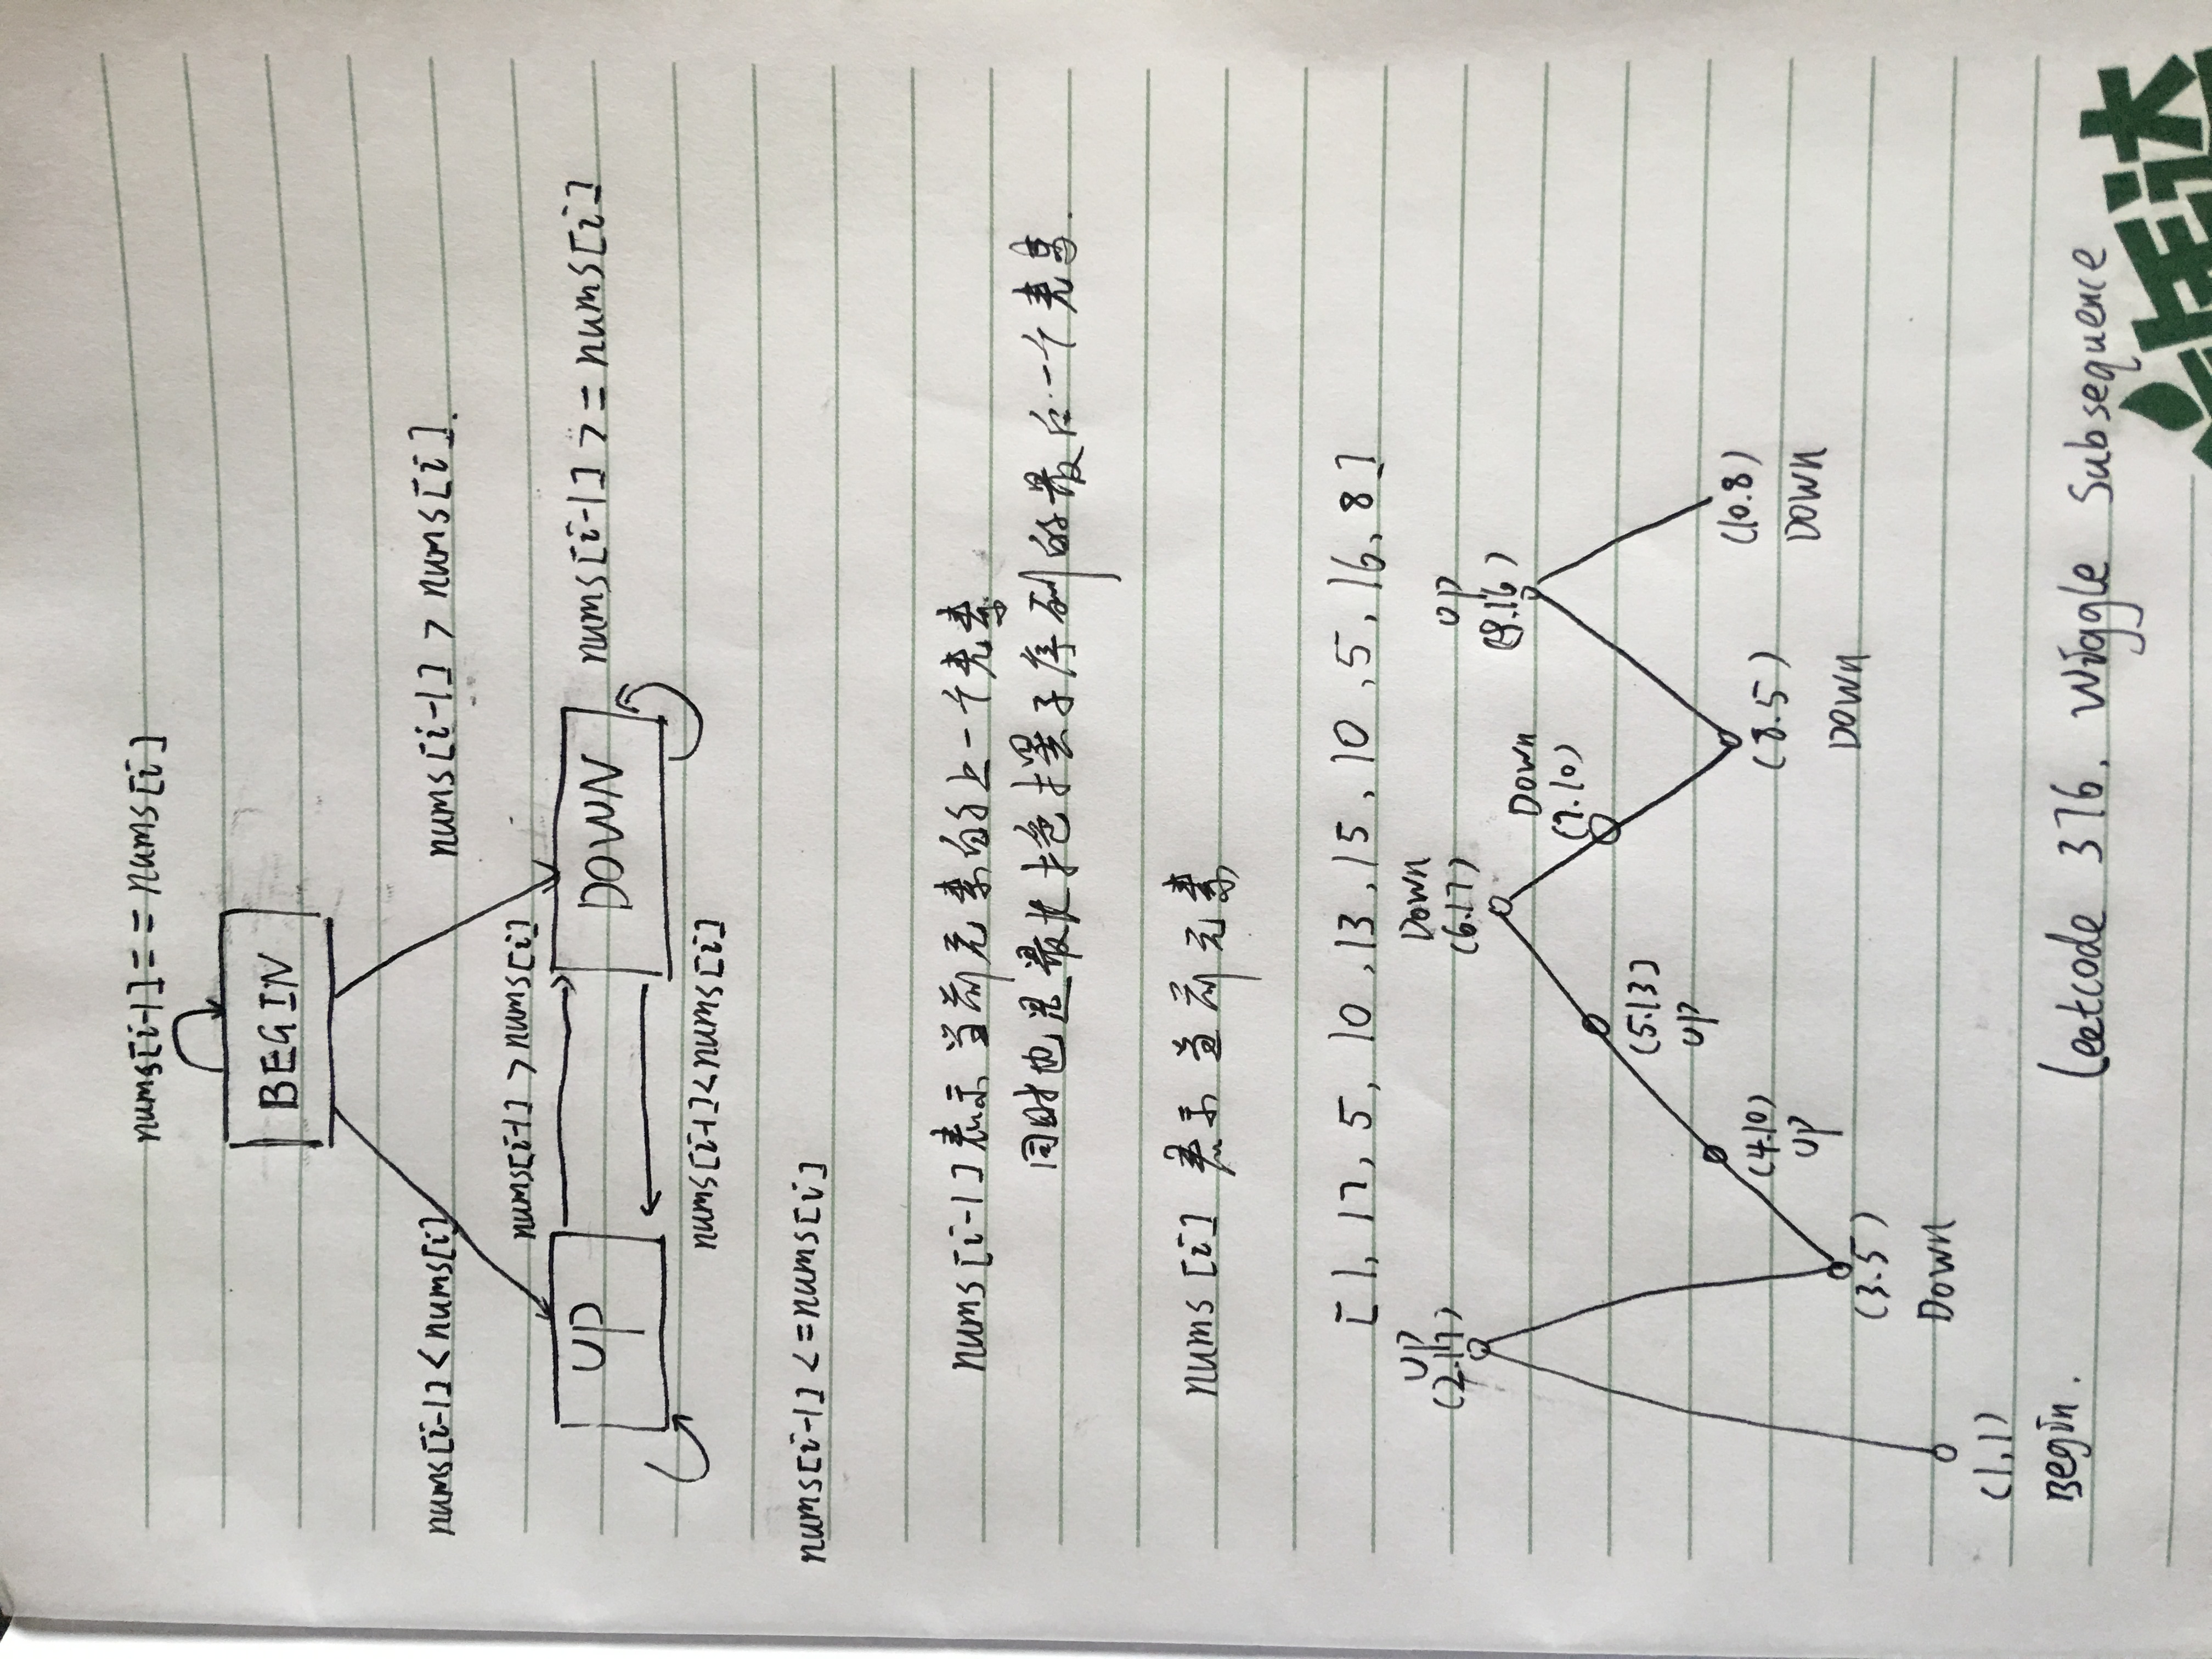 nums[i-1]==nums[i]
BEGIN
nums[i-1]<nums[i]
nums[i-1]>nums[i].
nums[i-1]>nums[i]
UP
DOWN
nums[i-1]>=nums[i]
nums[i-1]<nums[i]
nums[i-1]<=nums[i]
nums[i-1]表示当前元素的上一个元素
同时也是最长摇摆子序列的最后一个元素.
nums[i] 表示当前元素
[1, 17, 5, 10, 13, 15, 10, 5, 16, 8]
UP
(2.17)
Down
(6.17)
UP
(9.16)
Down
(7.10)
(5.13)
UP
(4.10)
UP
(8.5)
DOWN
(10.8)
DOWN
(3.5)
Down
(1,1)
Begin.
Leetcode 376. Wiggle Subsequence